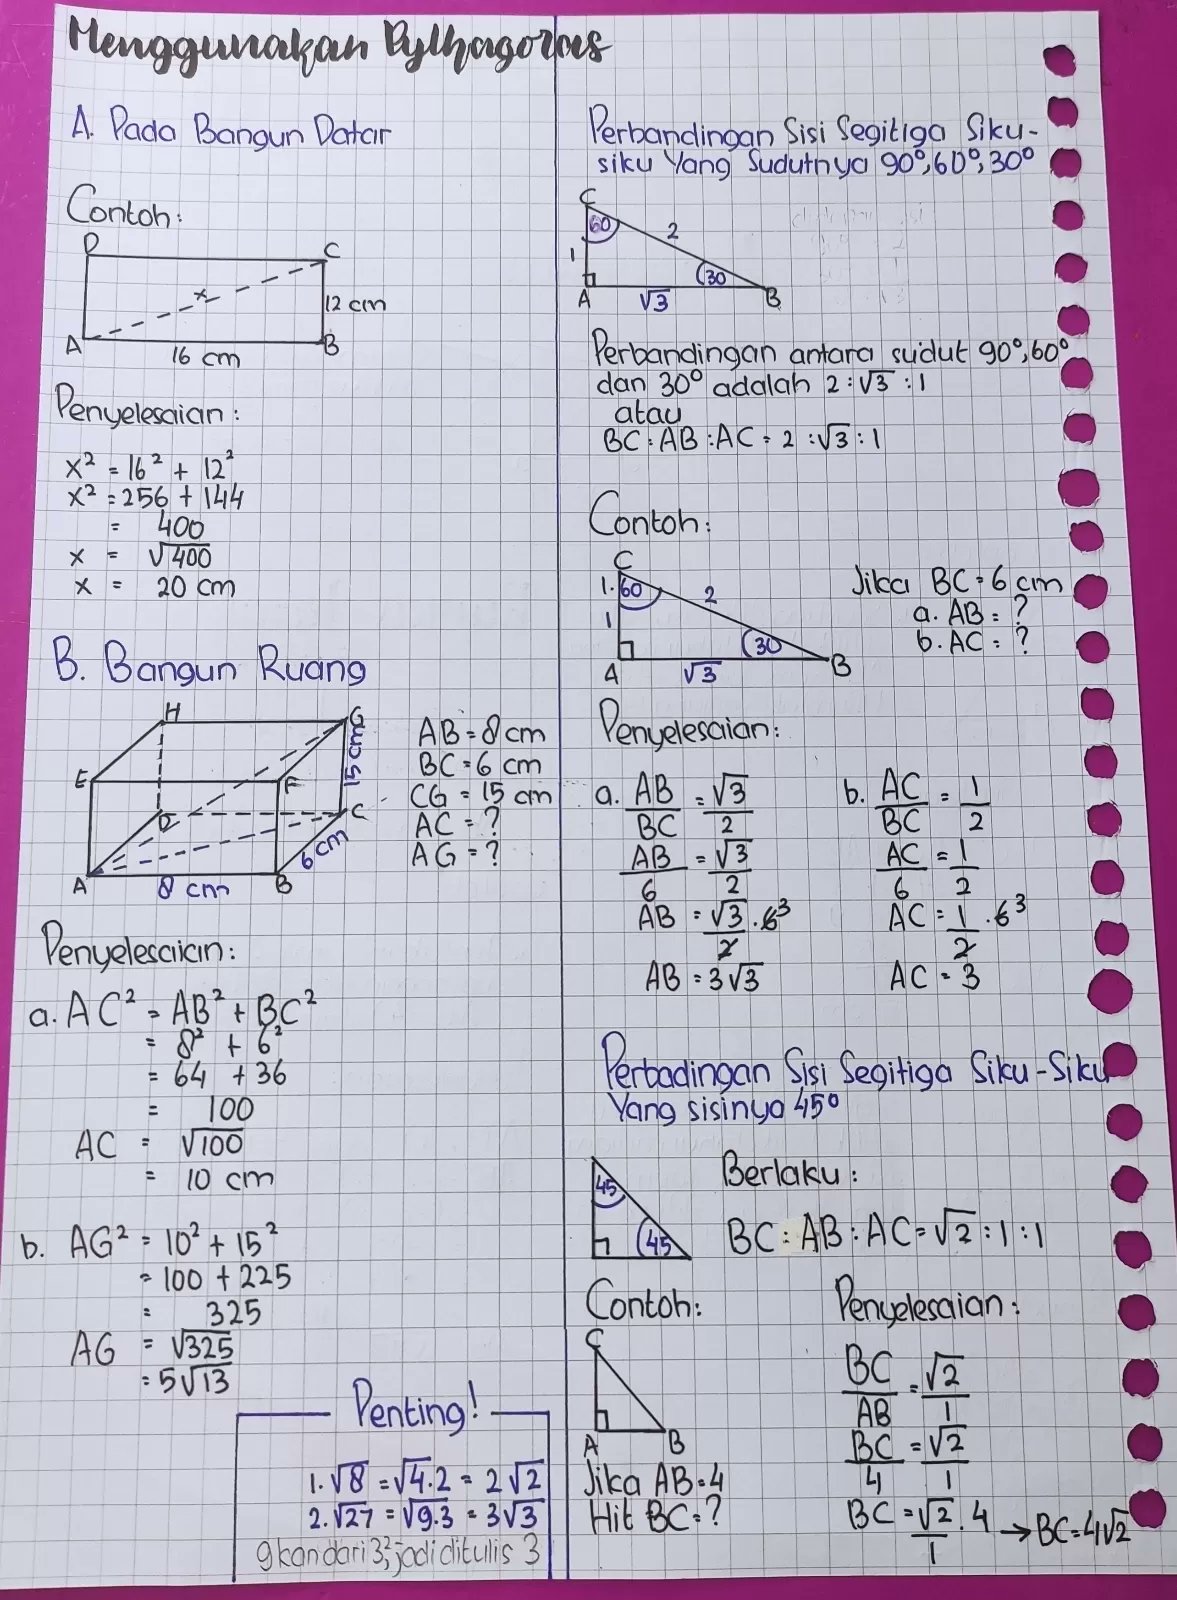 Menggunakan Pythagoras
A. Pada Bangun Datar
Contoh:
D
C
x
12 cm
A
B
16 cm
Penyelesaian:
x² = 16² + 12²
x² = 256 + 144
= 400
x = √400
x = 20 cm
B. Bangun Ruang
H
G
E
F
15 cm
D
C
A
8 cm
B
6 cm
AB = 8 cm
BC = 6 cm
CG = 15 cm
AC = ?
AG = ?
Penyelesaian:
a. AC² = AB² + BC²
= 8² + 6²
= 64 + 36
= 100
AC = √100
= 10 cm
b. AG² = 10² + 15²
= 100 + 225
= 325
AG = √325
= 5√13
Penting!
1. √8 = √4.2 = 2√2
2. √27 = √9.3 = 3√3
9 kan dari 3², jadi ditulis 3
Perbandingan Sisi Segitiga Siku-
siku Yang Sudutnya 90°, 60°, 30°
C
60
2
1
30
A
√3
B
Perbandingan antara sudut 90°, 60°
dan 30° adalah 2 : √3 : 1
atau
BC : AB : AC = 2 : √3 : 1
Contoh:
C
1. 60
2
1
30
A
√3
B
Jika BC = 6 cm
a. AB = ?
b. AC = ?
Penyelesaian:
a. AB/BC = √3/2
AB/6 = √3/2
AB = √3/2 . 6 3
AB = 3√3
b. AC/BC = 1/2
AC/6 = 1/2
AC = 1/2 . 6 3
AC = 3
Perbadingan Sisi Segitiga Siku-Siku
Yang sisinya 45°
45
45
Berlaku:
BC : AB : AC = √2 : 1 : 1
Contoh:
C
A
B
Jika AB = 4
Hit BC = ?
Penyelesaian:
BC/AB = √2/1
BC/4 = √2/1
BC = √2/1 . 4 → BC = 4√2